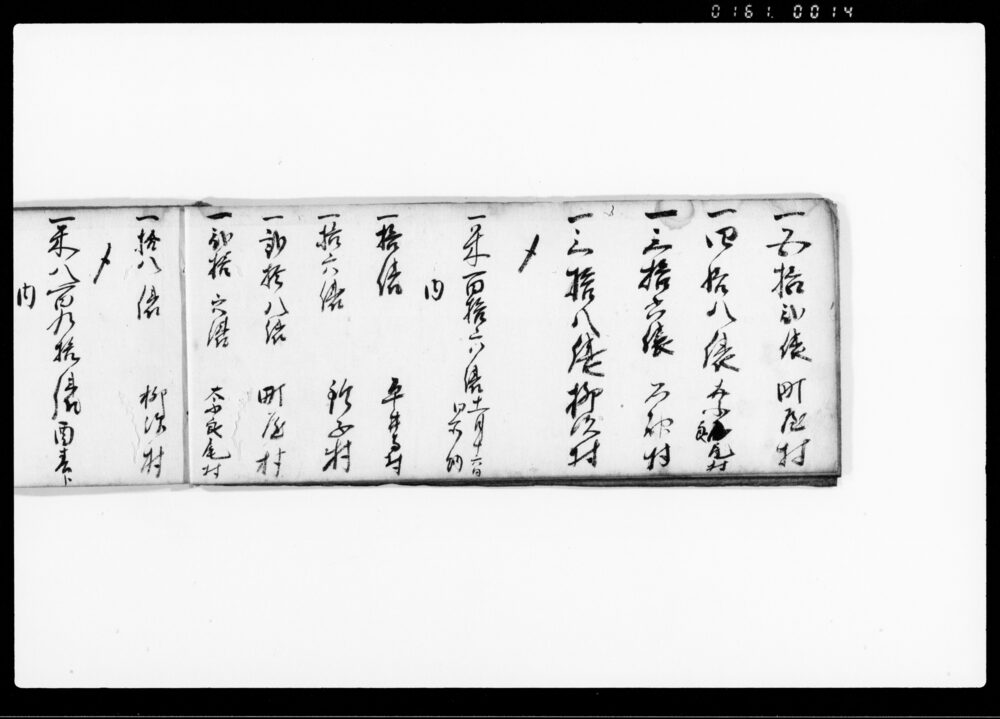 0161.0014
一五拾弐俵 町屋村
一四拾八俵 奈良尾村
一三拾六俵 村
一三拾八俵 柳沢村
〆
一米百拾六俵 十一月十六日 納
内
一拾俵 平井寺村
一拾六俵 鈴子村
一弐拾八俵 町屋村
一弐拾六俵 奈良尾村
一拾八俵 柳沢村
〆
一米八百九拾俵
内